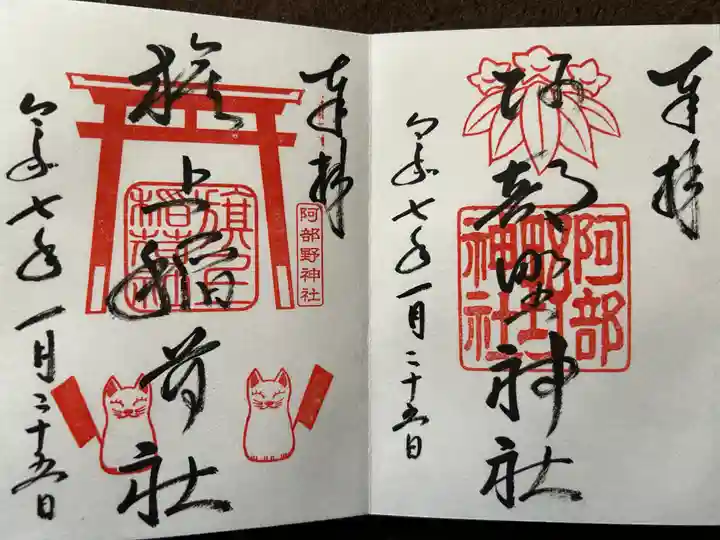 奉拝
阿部野神社
阿部野神社
令和七年一月二十五日
奉拝
阿部野神社
旗上稲荷社
旗上稲荷社
令和七年一月二十五日